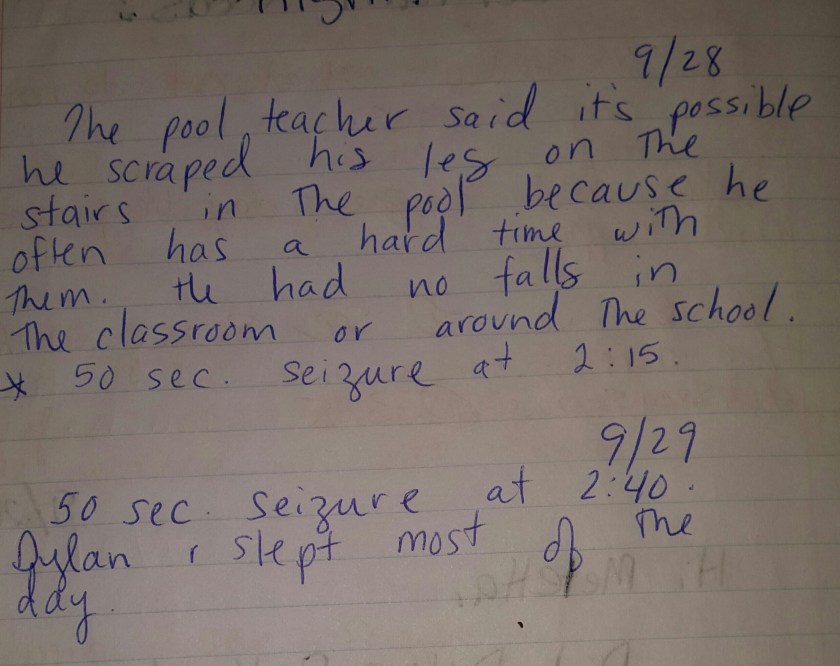 9/28
The pool teacher said it's possible
he scraped his leg on the
stairs in the pool because he
often has a hard time with
them. He had no falls in
the classroom or around the school.
* 50 sec. seizure at 2:15.
9/29
50 sec. seizure at 2:40.
Dylan slept most of the
day.